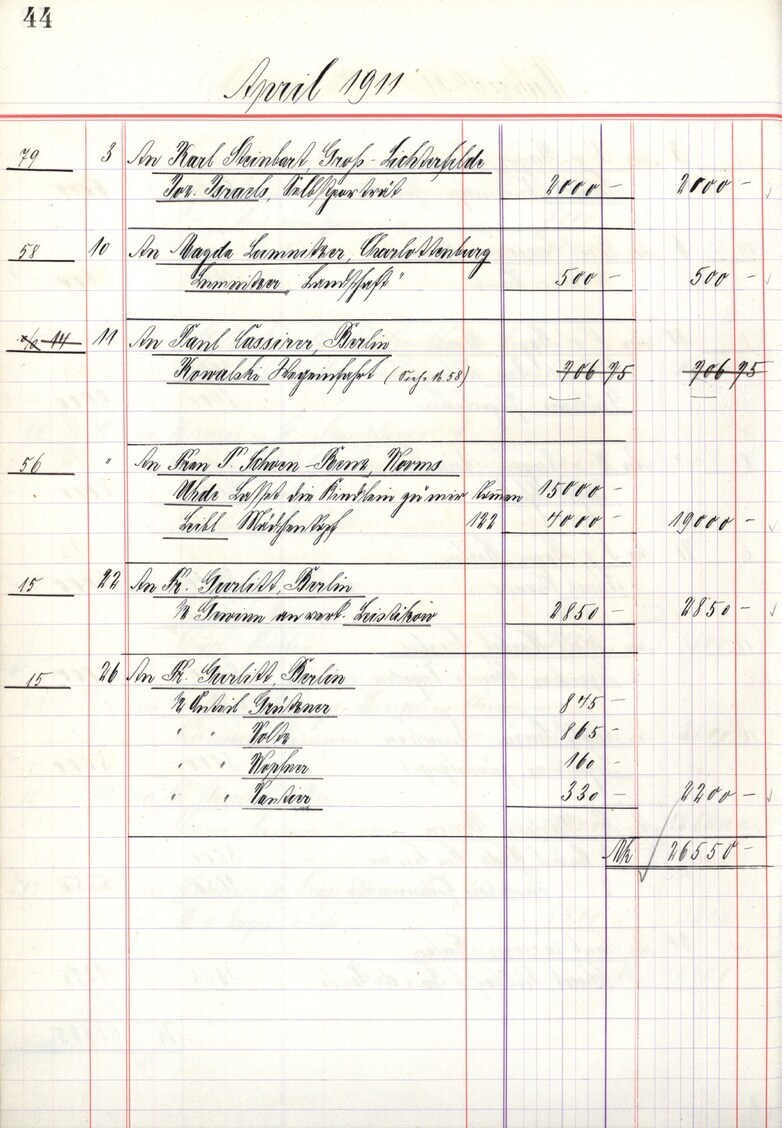 44
April 1911
79 3 An Karl Steinbart, Gross-Lichterfelde
Joz. Israels, Selbstportrait 2000 – 2000 –
58 10 An Magda Lumnitzer, Charlottenburg
Lumnitzer „Landschaft“ 500 – 500 –
14 11 An Paul Cassirer, Berlin
Kowalski Wegeinfahrt (Siehe N. 58) 706 75 706 75
56 " An Frau P. Schoen-Renz, Worms
Uhde Lasset die Kindlein zu mir kommen 15000 –
Leibl Mädchenkopf 122 4000 – 19000 –
15 22 An Fr. Gurlitt, Berlin
½ Gewinn an verk. Leistikow 2850 – 2850 –
15 26 An Fr. Gurlitt, Berlin
½ Anteil Grützner 845 –
" " Voltz 865 –
" " Wopfner 160 –
" " Vautier 330 – 2200 –
Mk 26550 –